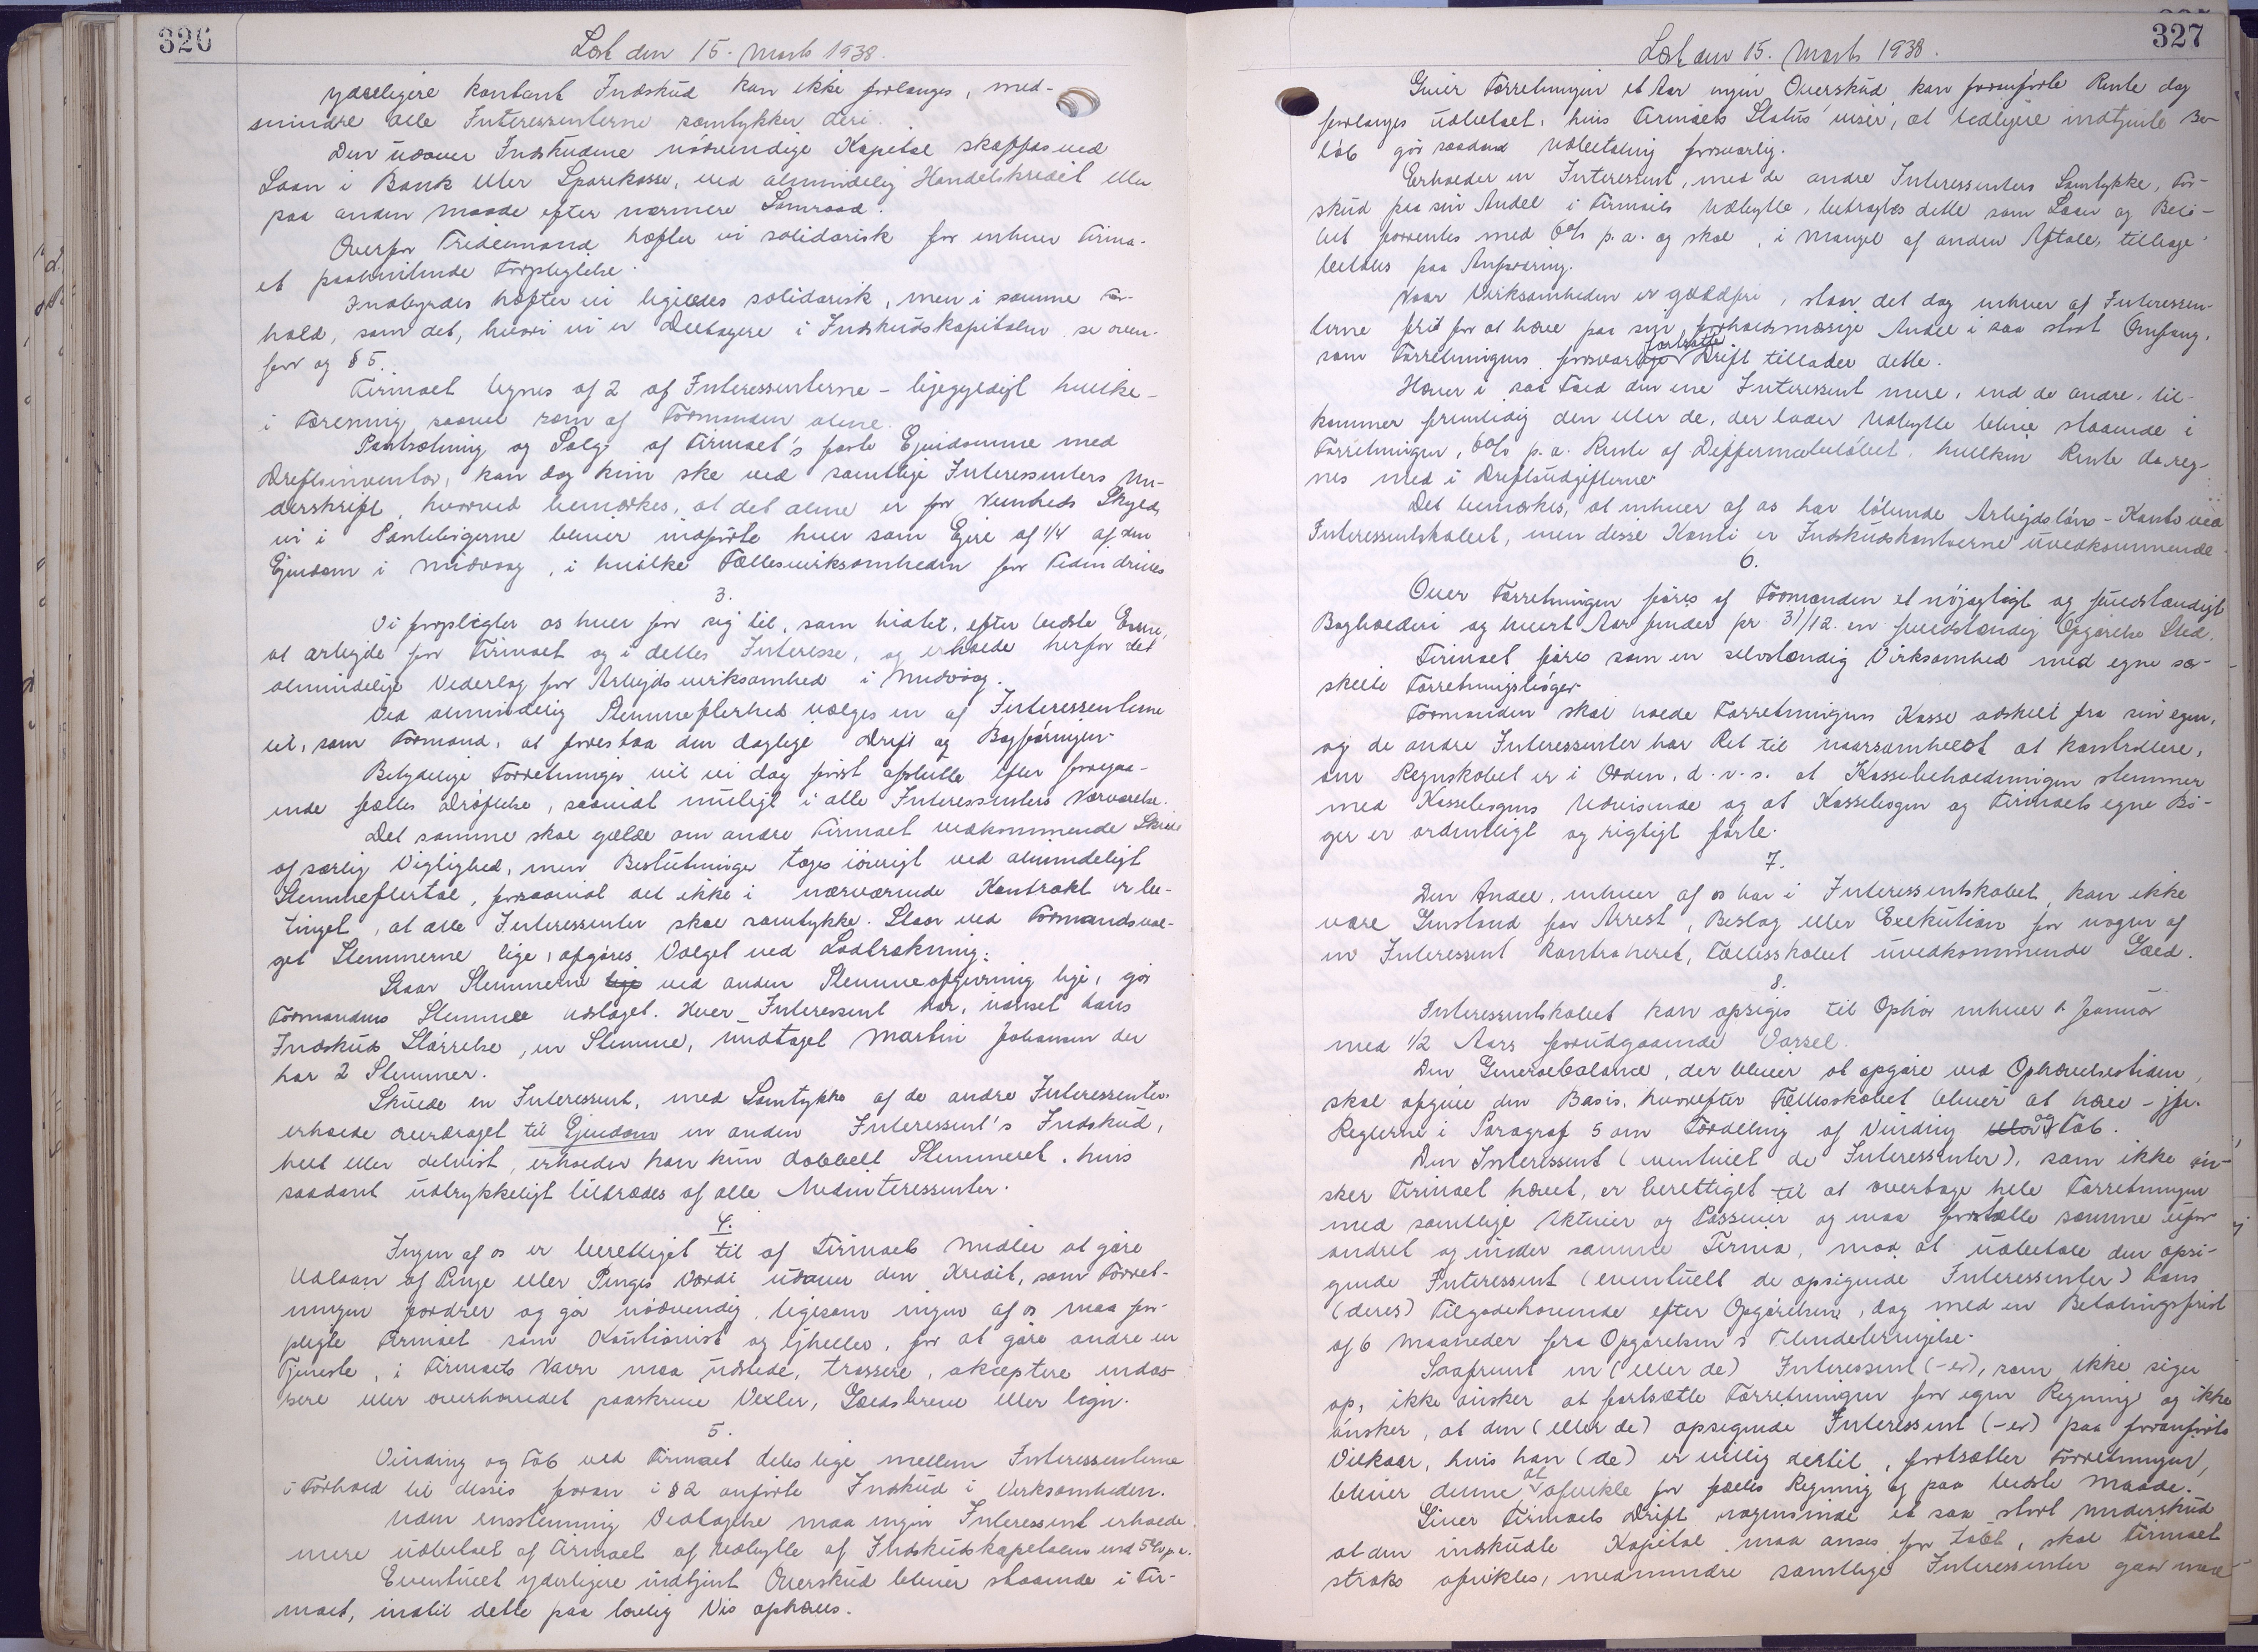 326
Læst den 15. Marts 1938.
yderligere kontant Indskud kan ikke forlanges, med-
mindre alle Interessenterne samtykker deri.
Den udover Indskudene nødvendige Kapital skaffes ved
Laan i Bank eller Sparekasse, ved almindelig Handelskredit eller
paa anden Maade efter nærmere Samraad.
Overfor Trediemand hæfter vi solidarisk for enhver Firma-
et paahvilende Forpligtelse.
Indbyrdes hæfter vi ligeledes solidarisk, men i samme For-
hold, som det, hvori vi er Deltagere i Indskudskapitalen, se oven-
for og § 5.
Firmaet tegnes af 2 af Interessenterne - ligegyldigt hvilke -
i Forening saavel som af Formanden alene.
Pantsætning og Salg af Firmaet's faste Ejendomme med
Driftsinventar, kan dog kun ske ved samtlige Interessenters Un-
derskrift, hvorved bemærkes, at det alene er for Nemheds Skyld,
vi i Pantebøgerne bliver indførte hver som Ejere af 1/4 af den
Ejendom i Midvaag, i hvilke Fællesvirksomheden for Tiden drives
3.
Vi forpligter os hver for sig til, som hidtil, efter bedste Evne,
at arbejde for Firmaet og i dettes Interesse, og erholde herfor det
almindelige Vederlag for Arbejdsvirksomhed i Midvaag.
Ved almindelig Stemmeflerhed vælges en af Interessenterne
ud, som Formand, at forestaa den daglige Drift og Bogføringen.
Betydelige Forretninger vil vi dog først afslutte efter foregaa-
ende fælles Drøftelse, saavidt muligt i alle Interessenters Nærværelse.
Det samme skal gælde om andre Firmaet vedkommende Skridt
af særlig Vigtighed, men Beslutninger tages iøvrigt ved almindeligt
Stemmeflertal, forsaavidt det ikke i nærværende Kontrakt er be-
tinget, at alle Interessenter skal samtykke. Staar ved Formandsval-
get Stemmerne lige, afgøres Valget ved Lodtrækning.
Staar Stemmerne lige ved anden Stemmeafgivning lige, gør
Formandens Stemme Udslaget. Hver Interessent har, uanset hans
Indskuds Størrelse, en Stemme, undtaget Martin Johansen der
har 2 Stemmer.
Skulde en Interessent, med Samtykke af de andre Interessenter
erholde overdraget til Ejendom en anden Interessent's Indskud,
helt eller delvist, erholder han kun dobbelt Stemmeret, hvis
saadant udtrykkeligt tiltrædes af alle Medinteressenter.
4.
Ingen af os er berettiget til af Firmaets Midler at gøre
Udlaan af Penge eller Penges Værdi udover den Kredit, som Forret-
ningen fordrer og gør nødvendig, ligesom ingen af os maa for-
pligte Firmaet som Kautionist og ejheller, for at gøre andre en
Tjeneste, i Firmaets Navn maa udstede, trassere, akceptere endos-
sere eller overhovedet paaskrive Vexler, Gældsbreve eller lign.
5.
Vinding og Tab ved Firmaet deles lige mellem Interessenterne
i Forhold til disses foran i § 2 anførte Indskud i Virksomheden.
Uden enstemmig Vedtagelse maa ingen Interessent erholde
mere udbetalt af Firmaet af Udbytte af Indskudskapitalen end 5% p.a.
Eventuelt yderligere indtjent Overskud bliver staaende i Fir-
maet, indtil dette paa lovlig Vis ophæves.
327
Læst den 15. Marts 1938.
Giver Forretningen et Aar ingen Overskud, kan foranførte Rente dog
forlanges udbetalt, hvis Firmaets Status viser, at tidligere indtjente Be-
løb gør saadan Udbetaling forsvarlig.
Erholder en Interessent, med de andre Interessenters Samtykke, For-
skud paa sin Andel i Firmaets Udbytte, betragtes dette som Laan og Belø-
bet forrentes med 6% p.a. og skal, i Mangel af anden Aftale, tilbage-
betales paa Anfordring.
Naar Virksomheden er gældfri, staar det dog enhver af Interessen-
terne frit for at hæve paa sin forholdsmæssige Andel i saa stort Omfang,
som Forretningens forsvarlige fortsatte Drift tillader dette.
Hæver i saa Fald den ene Interessent mere, end de andre, til-
kommer fremtidig den eller de, der lader Udbytte blive staaende i
Forretningen, 6% p.a. Rente af Differencebeløbet, hvilken Rente da reg-
nes med i Driftsudgifterne
Det bemærkes, at enhver af os har løbende Arbejdsløns-Konto ved
Interessentskabet, men disse Konti er Indskudskontoerne uvedkommende.
6.
Over Forretningen føres af Formanden et nøjagtigt og fuldstændigt
Bogholderi og hvert Aar finder pr 31/12. en fuldstændig Opgørelse Sted.
Firmaet føres som en selvstændig Virksomhed med egne sær-
skilte Forretningsbøger.
Formanden skal holde Forretningens Kasse adskilt fra sin egen,
og de andre Interessenter har Ret til naarsomhelst at kontrollere,
om Regnskabet er i Orden, d.v.s. at Kassebeholdningen stemmer
med Kassebogens Udvisende og at Kassebogen og Firmaets egne Bø-
ger er ordentligt og rigtigt førte.
7.
Den Andel, enhver af os har i Interessentskabet, kan ikke
være Genstand for Arrest, Beslag eller Exekution for nogen af
en Interessent kontraheret, Fællesskabet uvedkommende Gæld.
8.
Interessentskabet kan opsiges til Ophør enhver 1. Januar
med 1/2 Aars forudgaaende Varsel.
Den Generalbalance, der bliver at opgøre ved Ophævelsestiden,
skal afgive den Basis, hvorefter Fællesskabet bliver at hæve - jfr.
Reglerne i Paragraf 5 om Fordeling af Vinding eller og Tab.
Den Interessent (eventuelt de Interessenter), som ikke øn-
sker Firmaet hævet, er berettiget til at overtage hele Forretningen
med samtlige Aktiver og Passiver og maa fortsætte samme ufor-
andret og under samme Firma, mod at udbetale den opsi-
gende Interessent (eventuelt de opsigende Interessenter) hans
(deres) Tilgodehavende efter Opgørelsen, dog med en Betalingsfrist
af 6 Maaneder fra Opgørelsen's Tilendebringelse.
Saafremt en (eller de) Interessent (-er), som ikke siger
op, ikke ønsker at fortsætte Forretningen for egen Regning og ikke
ønsker, at den (eller de) opsigende Interessent (-er) paa foranførte
Vilkaar, hvis han (de) er villig dertil, fortsætter Forretningen,
bliver denne at afvikle for fælles Regning og paa bedste Maade.
Giver Firmaets Drift nogensinde et saa stort Underskud
at den indskudte Kapital maa anses for tabt, skal Firmaet
straks afvikles, medmindre samtlige Interessenter gaar med